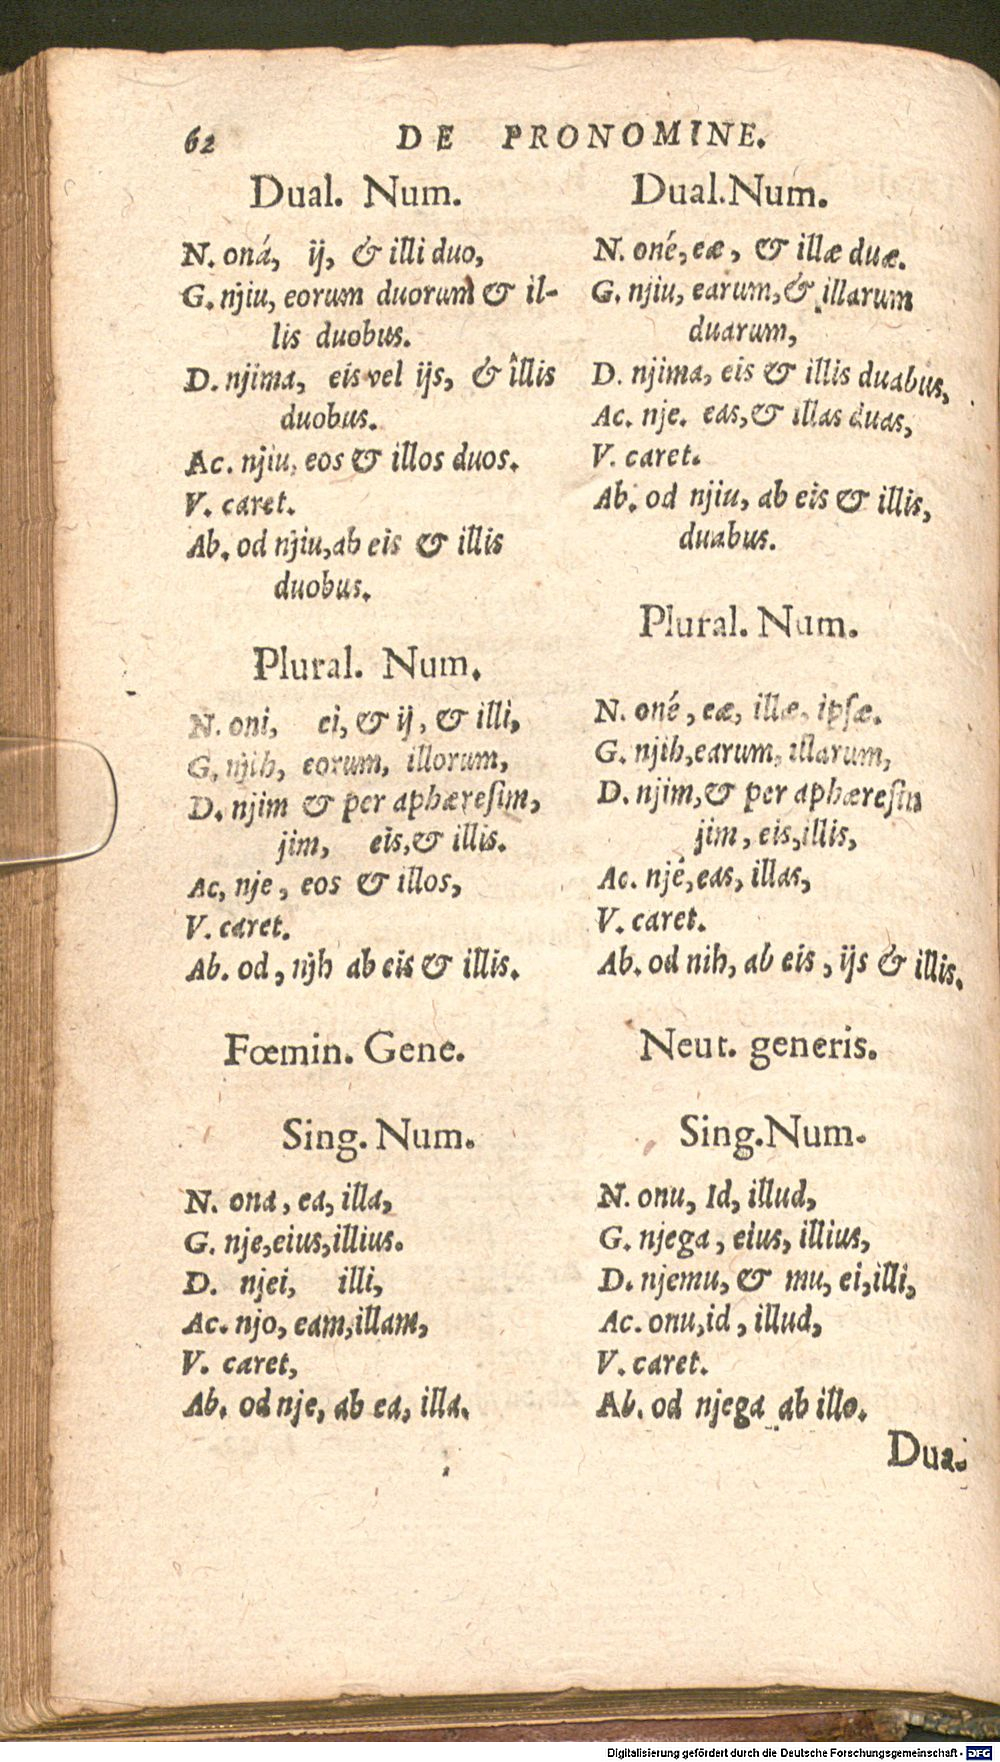 62 DE PRONOMINE.
Dual. Num.
N. oná, ij, & illi duo,
G. njiu, eorum duorum & il-
lis duobus.
D. njima, eis vel ijs, & îllis
duobus.
Ac. njiu, eos & illos duos.
V. caret.
Ab. od njiu, ab eis & illis
duobus.
Plural. Num.
N. oni, ei, & ij, & illi,
G. njih, eorum, illorum,
D. njim & per aphæreſim,
jim, eis, & illis.
Ac, nje, eos & illos,
V. caret.
Ab. od, njh ab eis & illis.
Fœmin. Gene.
Sing. Num.
N. ona, ea, illa,
G. nje, eius, illius.
D. njei, illi,
Ac. njo, eam, illam,
V. caret,
Ab. od nje, ab ea, illa.
Dual. Num.
N. oné, eæ, & illæ duæ.
G. njiu, earum, & illarum
duarum,
D. njima, eis & illis duabus,
Ac. nje. eas, & illas duas,
V. caret.
Ab. od njiu, ab eis & illis,
duabus.
Plural. Num.
N. oné, eæ, illæ, ipſæ.
G. njih, earum, illarum,
D. njim, & per aphæreſin
jim, eis, illis,
Ac. njé, eas, illas,
V. caret.
Ab. od nih, ab eis, ijs & illis.
Neut. generis.
Sing. Num.
N. onu, Id, illud,
G. njega, eius, illius,
D. njemu, & mu, ei, illi,
Ac. onu, id, illud,
V. caret.
Ab. od njega ab illo.
Dua.
Digitalisierung gefördert durch die Deutsche Forschungsgemeinschaft - DFG